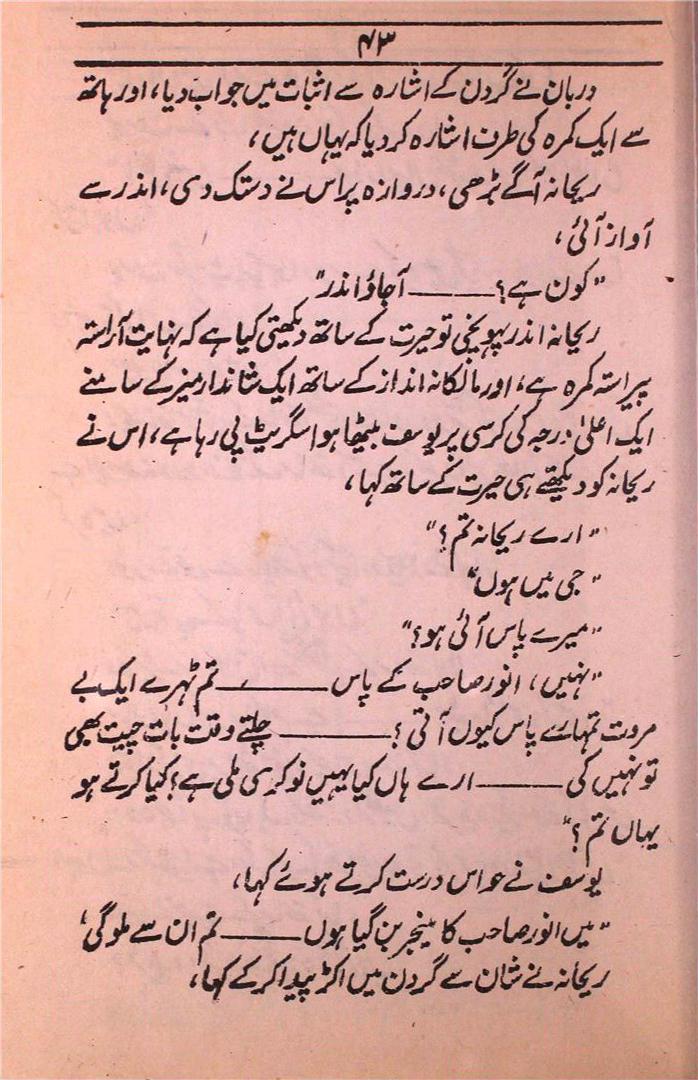 ۴۳
دربان نے گردن کے اشارہ سے اثبات میں جواب دیا، اور ہاتھ
سے ایک کمرہ کی طرف اشارہ کر دیا کہ یہاں ہیں،
ریحانہ آگے بڑھی، دروازہ پر اس نے دستک دی، اندر سے
آواز آئی،
"کون ہے؟ ——— آجاؤ اندر"
ریحانہ اندر پہونچی تو حیرت کے ساتھ دیکھتی کیا ہے کہ نہایت آراستہ
پیراستہ کمرہ ہے، اور مالکانہ انداز کے ساتھ ایک شاندار میز کے سامنے
ایک اعلیٰ درجہ کی کرسی پر یوسف بیٹھا ہوا سگریٹ پی رہا ہے، اس نے
ریحانہ کو دیکھتے ہی حیرت کے ساتھ کہا،
"ارے ریحانہ تم؟"
"جی میں ہوں"
"میرے پاس آئی ہو؟"
"نہیں، انور صاحب کے پاس ——— تم ٹہرے ایک بے
مروت تمہارے پاس کیوں آتی؟ ——— چلتے وقت بات چیت بھی
تو نہیں کی ——— ارے ہاں کیا یہیں نوکری ملی ہے؟ کیا کرتے ہو
یہاں تم؟"
یوسف نے حواس درست کرتے ہوئے کہا،
"میں انور صاحب کا منیجر بن گیا ہوں ——— تم ان سے ملوگی؟
ریحانہ نے شان سے گردن میں اکڑ پیدا کر کے کہا،